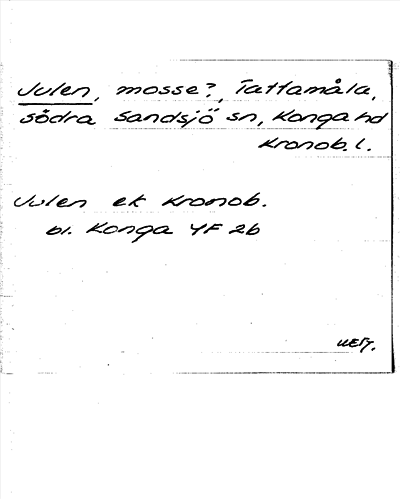 Julen, mosse?, Tattamåla,
södra Sandsjö sn, Konga hd
Kronob. l.
Julen ek Kronob.
bl. Konga 4F 2b